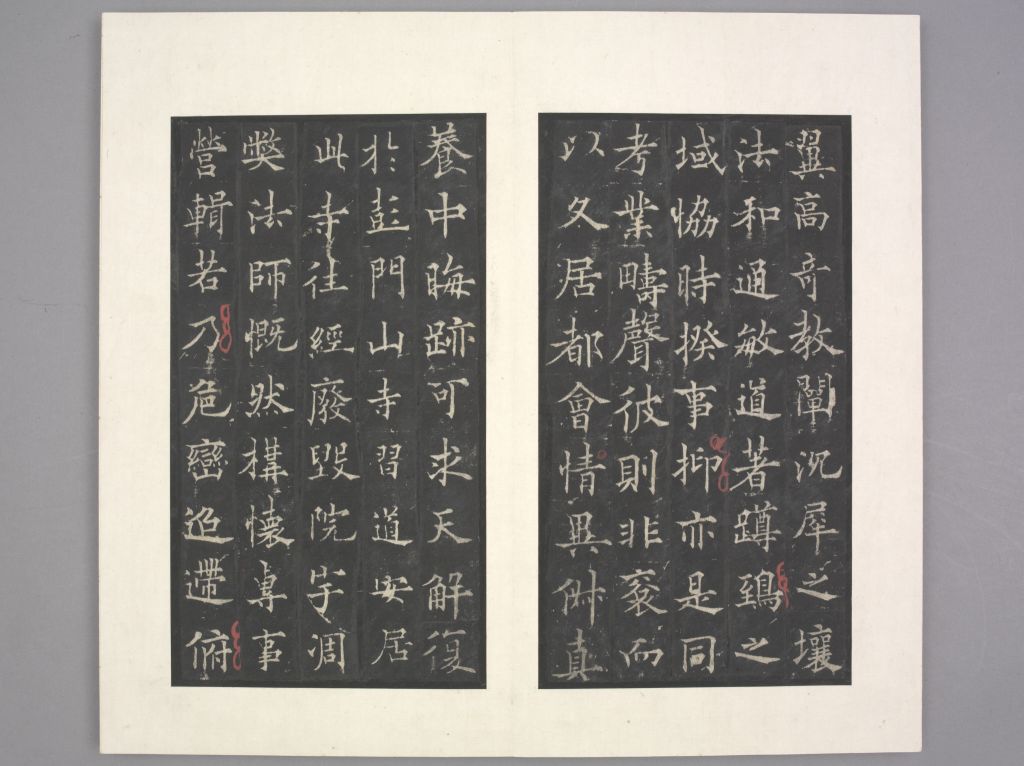 翼高奇教闡沉犀之壤
法和通敏道著蹲鵄之
域恊時揆事抑亦是同
考業疇聲彼則非衮而
以久居都會情異真
養中晦跡可求天解復
於彭門山寺習道安居
此寺往經廢毀院宇凋
弊法師慨然構懷專事
營輯若乃危巒迢遰俯